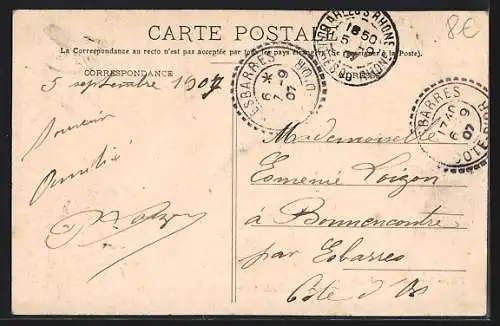 8€
CARTE POSTALE
La Correspondance au recto n'est pas acceptée par tous les pays étrangers (Se renseigner à la Poste).
CORRESPONDANCE
ADRESSE
ARLES S RHONE
18 50
5 - 9
07
ESBARRES
6 *
7 - 9
07
ESBARRES
6 9
07
COTE-D'OR
5 septembre 1907
Souvenir
Amitié
Mademoiselle
Esménie Loizon
à Bonnencontre
par Esbarres
Côte d'Or